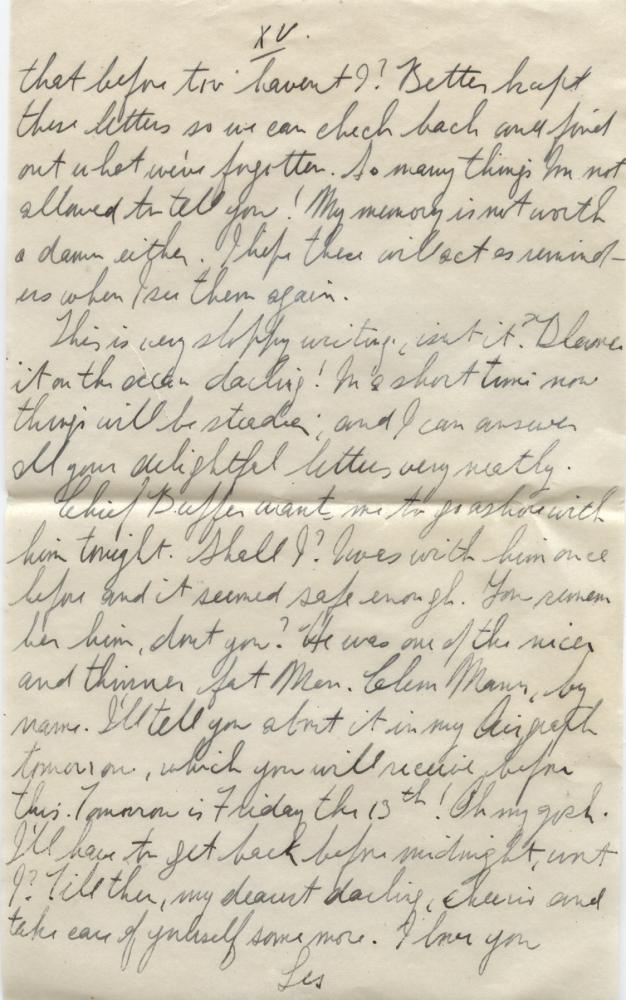 XV.
that before too havent I? Better keep
these letters so we can check back and find
out what we've forgotten. So many things Im not
allowed to tell you! My memory is not worth
a damn either. I hope these will act as remind-
ers when I see them again.
This is very sloppy writing, isnt it? Blame
it on the ocean darling! In a short time now
things will be steadier, and I can answer
all your delightful letters very neatly.
Chief Buffer wants me to go ashore with
him tonight. Shall I? I was with him once
before and it seemed safe enough. You remem
ber him, dont you? He was one of the nicer
and thinner fat Men. Clem Mann, by
name. I'll tell you about it in my Airgraph
tomorrow, which you will receive before
this. Tomorrow is Friday the 13th! Oh my gosh.
I'll have to get back before midnight, wont
I? Till then, my dearest darling, cheerio and
take care of yourself some more. I love you
Les